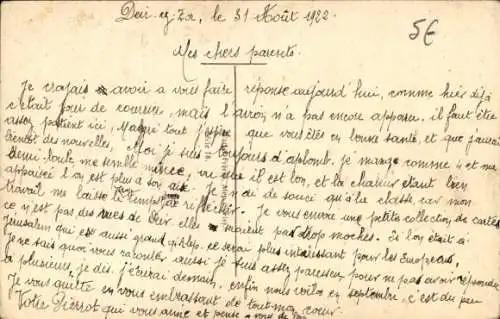 Deir-ez-Zor, le 31 Août 1922
5€
Mes chers parents.
Je croyais avoir à vous faire réponse aujourd'hui, comme hier déjà
c'était jour de courrier, mais l'avion n'a pas encore apparu. il faut être
assez patient ici, Malgré tout j'espère que vous êtes en bonne santé, et que j'aurai
bientôt des nouvelles. Moi je suis toujours d'aplomb. Je mange comme 4 et ma
demi boule me semble mince, vu que il est bon, et la chaleur étant bien
apaisée l'on est plus à son aise. Je n'ai de souci qu'à la chasse, car mon
travail me laisse le temps de réfléchir. Je vous envoie une petite collection de cartes
ce n'est pas des rues de Deir, elles n'étaient pas trop moches. Si l'on était à
Jérusalem qui est aussi grand ce serait plus intéressant pour les Européens,
Je ne sais quoi vous raconter aussi je suis assez paresseux pour ne pas avoir répondu
à plusieurs, je dis, j'écrirai demain, enfin nous voilà en septembre, c'est du peu
Je vous quitte en vous embrassant de tout mon cœur.
Votre Pierrot qui vous aime et pense à vous